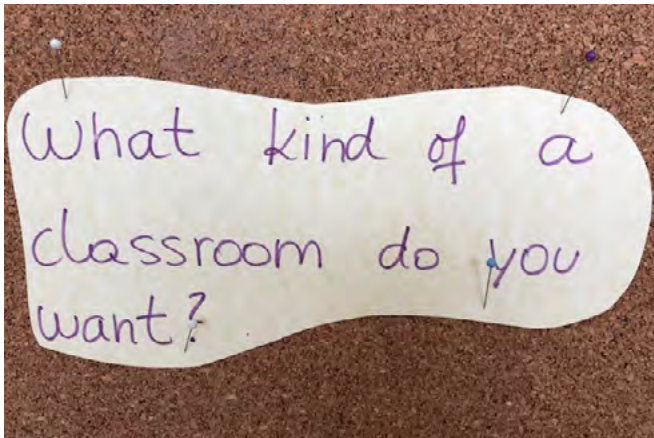 What kind of a
classroom do you
want?